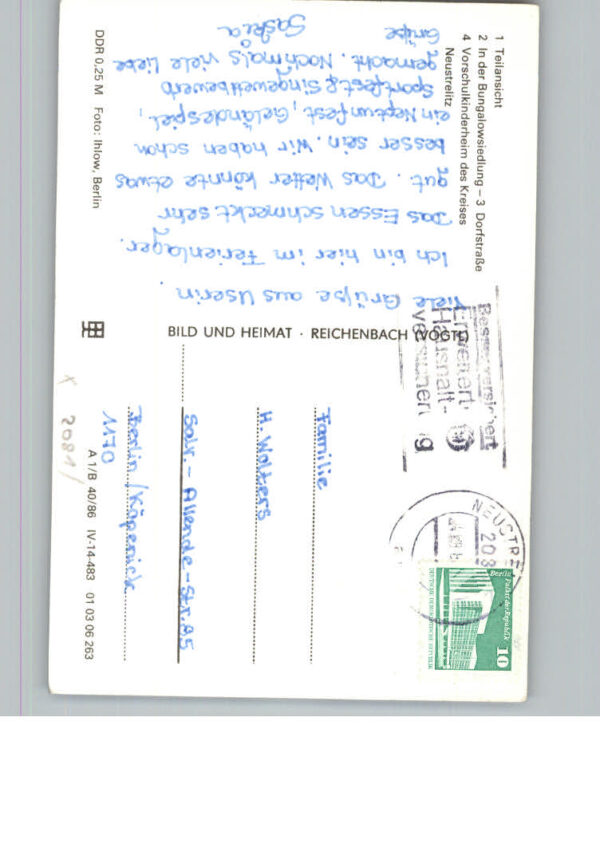 1 Teilansicht
2 In der Bungalowsiedlung – 3 Dorfstraße
4 Vorschulkinderheim des Kreises
Neustrelitz
Viele Grüße aus Userin.
Ich bin hier im Ferienlager.
Das Essen schmeckt sehr
gut. Das Wetter könnte etwas
besser sein. Wir haben schon
ein Neptunfest, Geländespiel,
Sportfest & Singewettbewerb
gemacht. Nochmals viele liebe
Grüße
Saskia
DDR 0,25 M Foto: Ihlow, Berlin
BILD UND HEIMAT · REICHENBACH (VOGTL)
Besser versichert
Erweiterte
Haushalt-
versicherung
NEUSTRE
203
Berlin, Palast der Republik
10
DEUTSCHE DEMOKRATISCHE REPUBLIK
Familie
H. Wolters
Salv.-Allende-Str. 85
Berlin/Köpenick
1170
A 1/B 40/86 IV-14-483 01 03 06 263
X 2081/